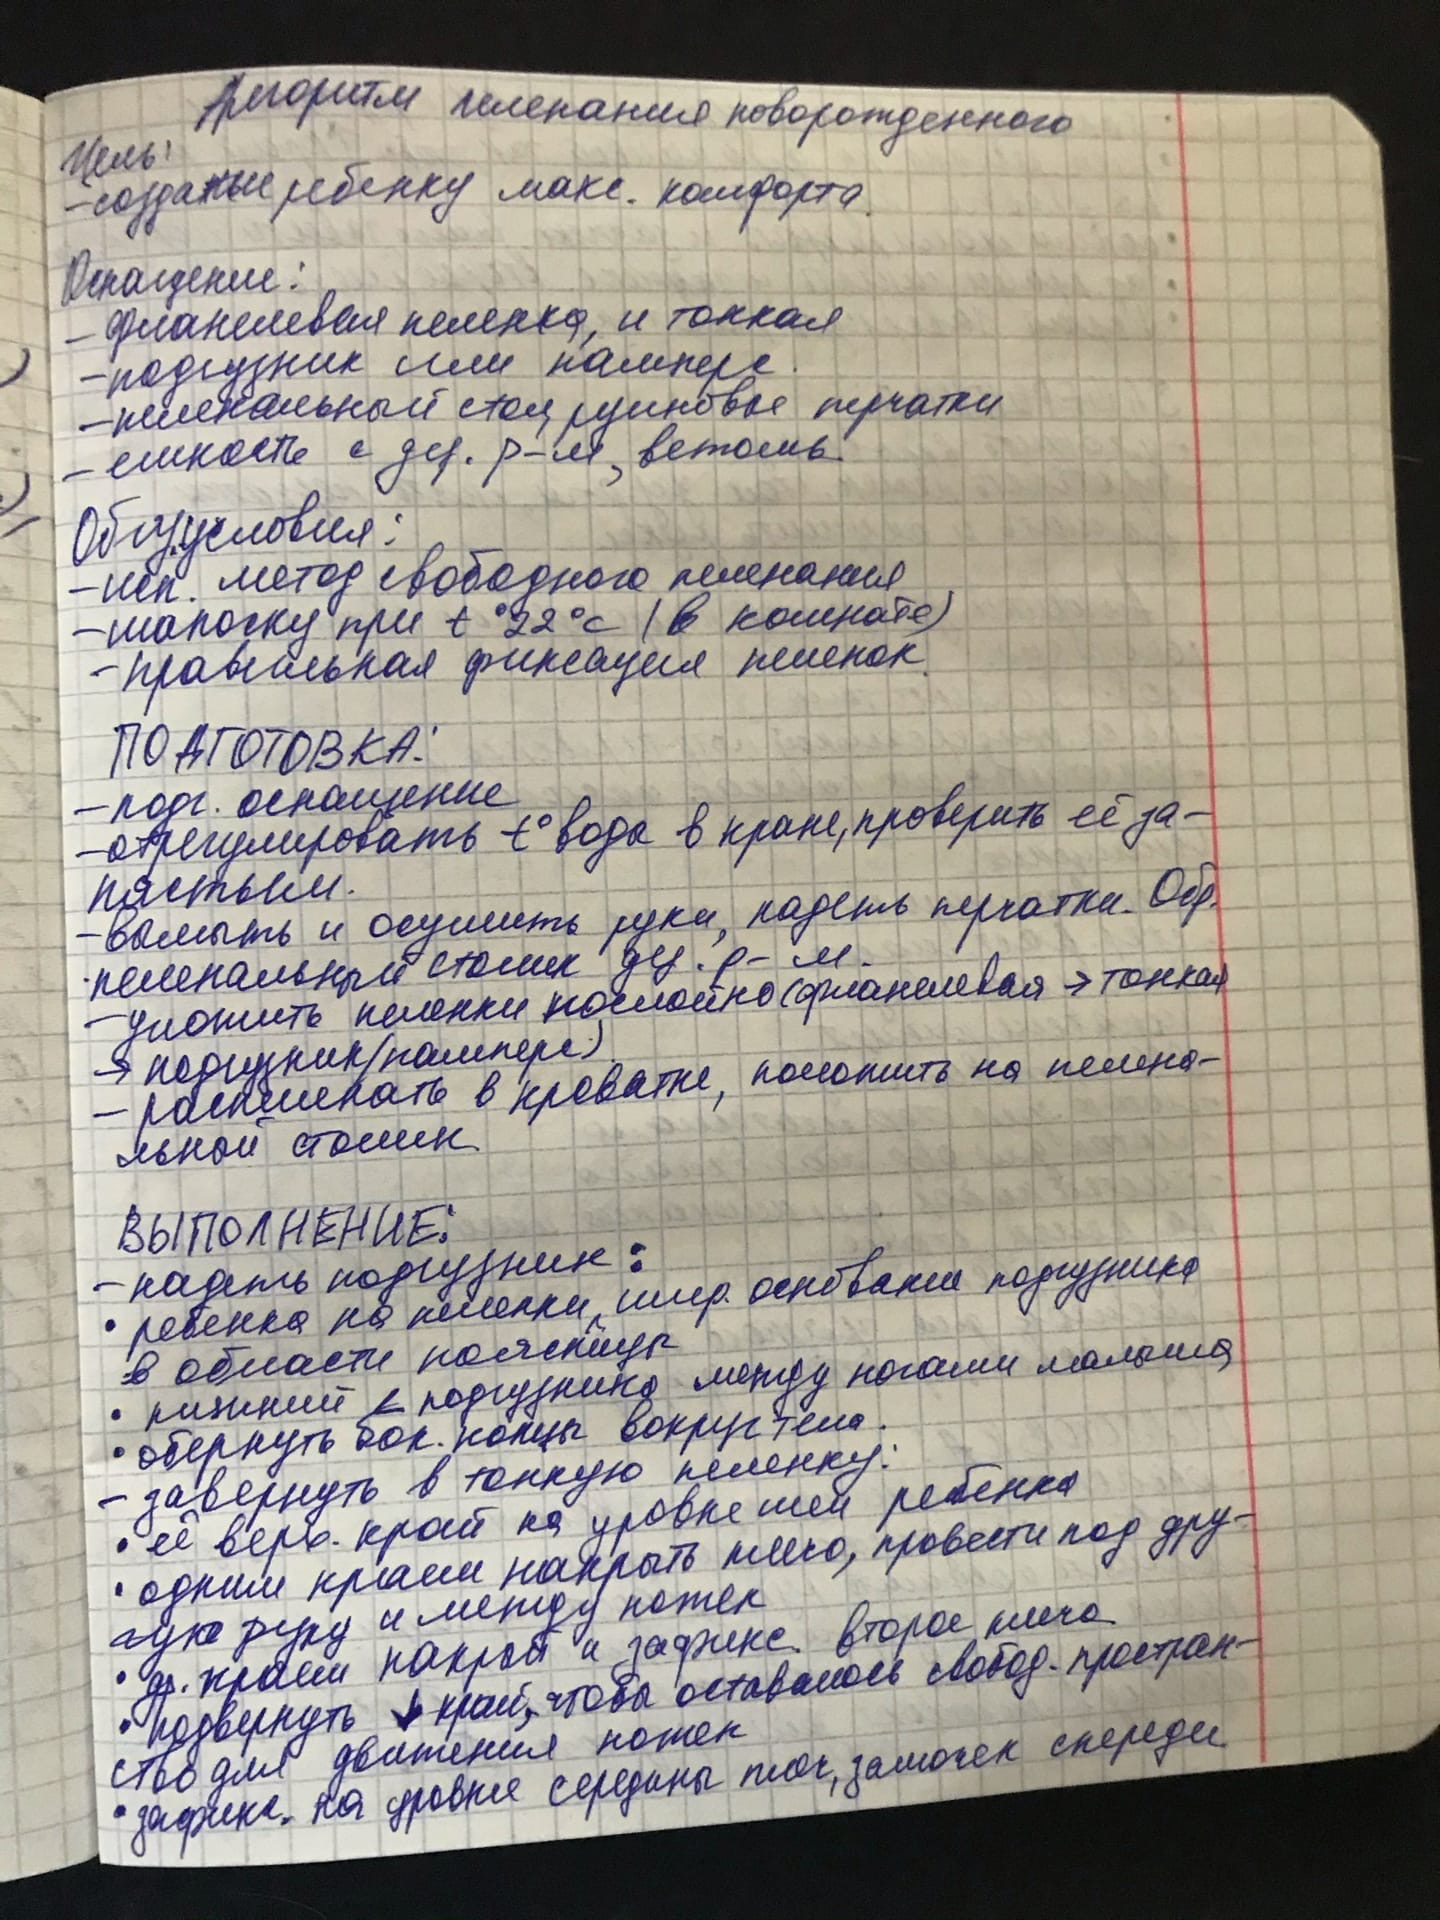 Алгоритм пеленания новорожденного
Цель:
- создание ребенку макс. комфорта.
Оснащение:
- фланелевая пеленка, и тонкая
- подгузник или памперс.
- пеленальный стол, резиновые перчатки
- емкость с дез. р-м, ветошь.
Обяз. условия:
- исп. метод свободного пеленания
- шапочку при t° 22°C (в комнате)
- правильная фиксация пеленок.
ПОДГОТОВКА:
- подг. оснащение
- отрегулировать t° воды в кране, проверить её за-
пястьем.
- вымыть и осушить руки, надеть перчатки. Обр.
пеленальный столик дез. р-м.
- уложить пеленки послойно (фланелевая → тонкая
→ подгузник (памперс).
- распеленать в кроватке, положить на пелена-
льной столик.
ВЫПОЛНЕНИЕ:
- надеть подгузник:
• ребенка на пеленки, шир. основание подгузника
в области поясницы
• нижний < подгузника между ногами малыша
• обернуть бок. концы вокруг тела.
- завернуть в тонкую пеленку:
• её верх. край на уровне шеи ребенка
• одним краем накрыть плечо, провести под дру-
гую руку и между ножек
• др. краем накрыть и зафикс. второе плечо
• подвернуть ↓ край, чтобы оставалось свобод. простран-
ство для движения ножек
• зафикс. на уровне середины плеч, замочек спереди